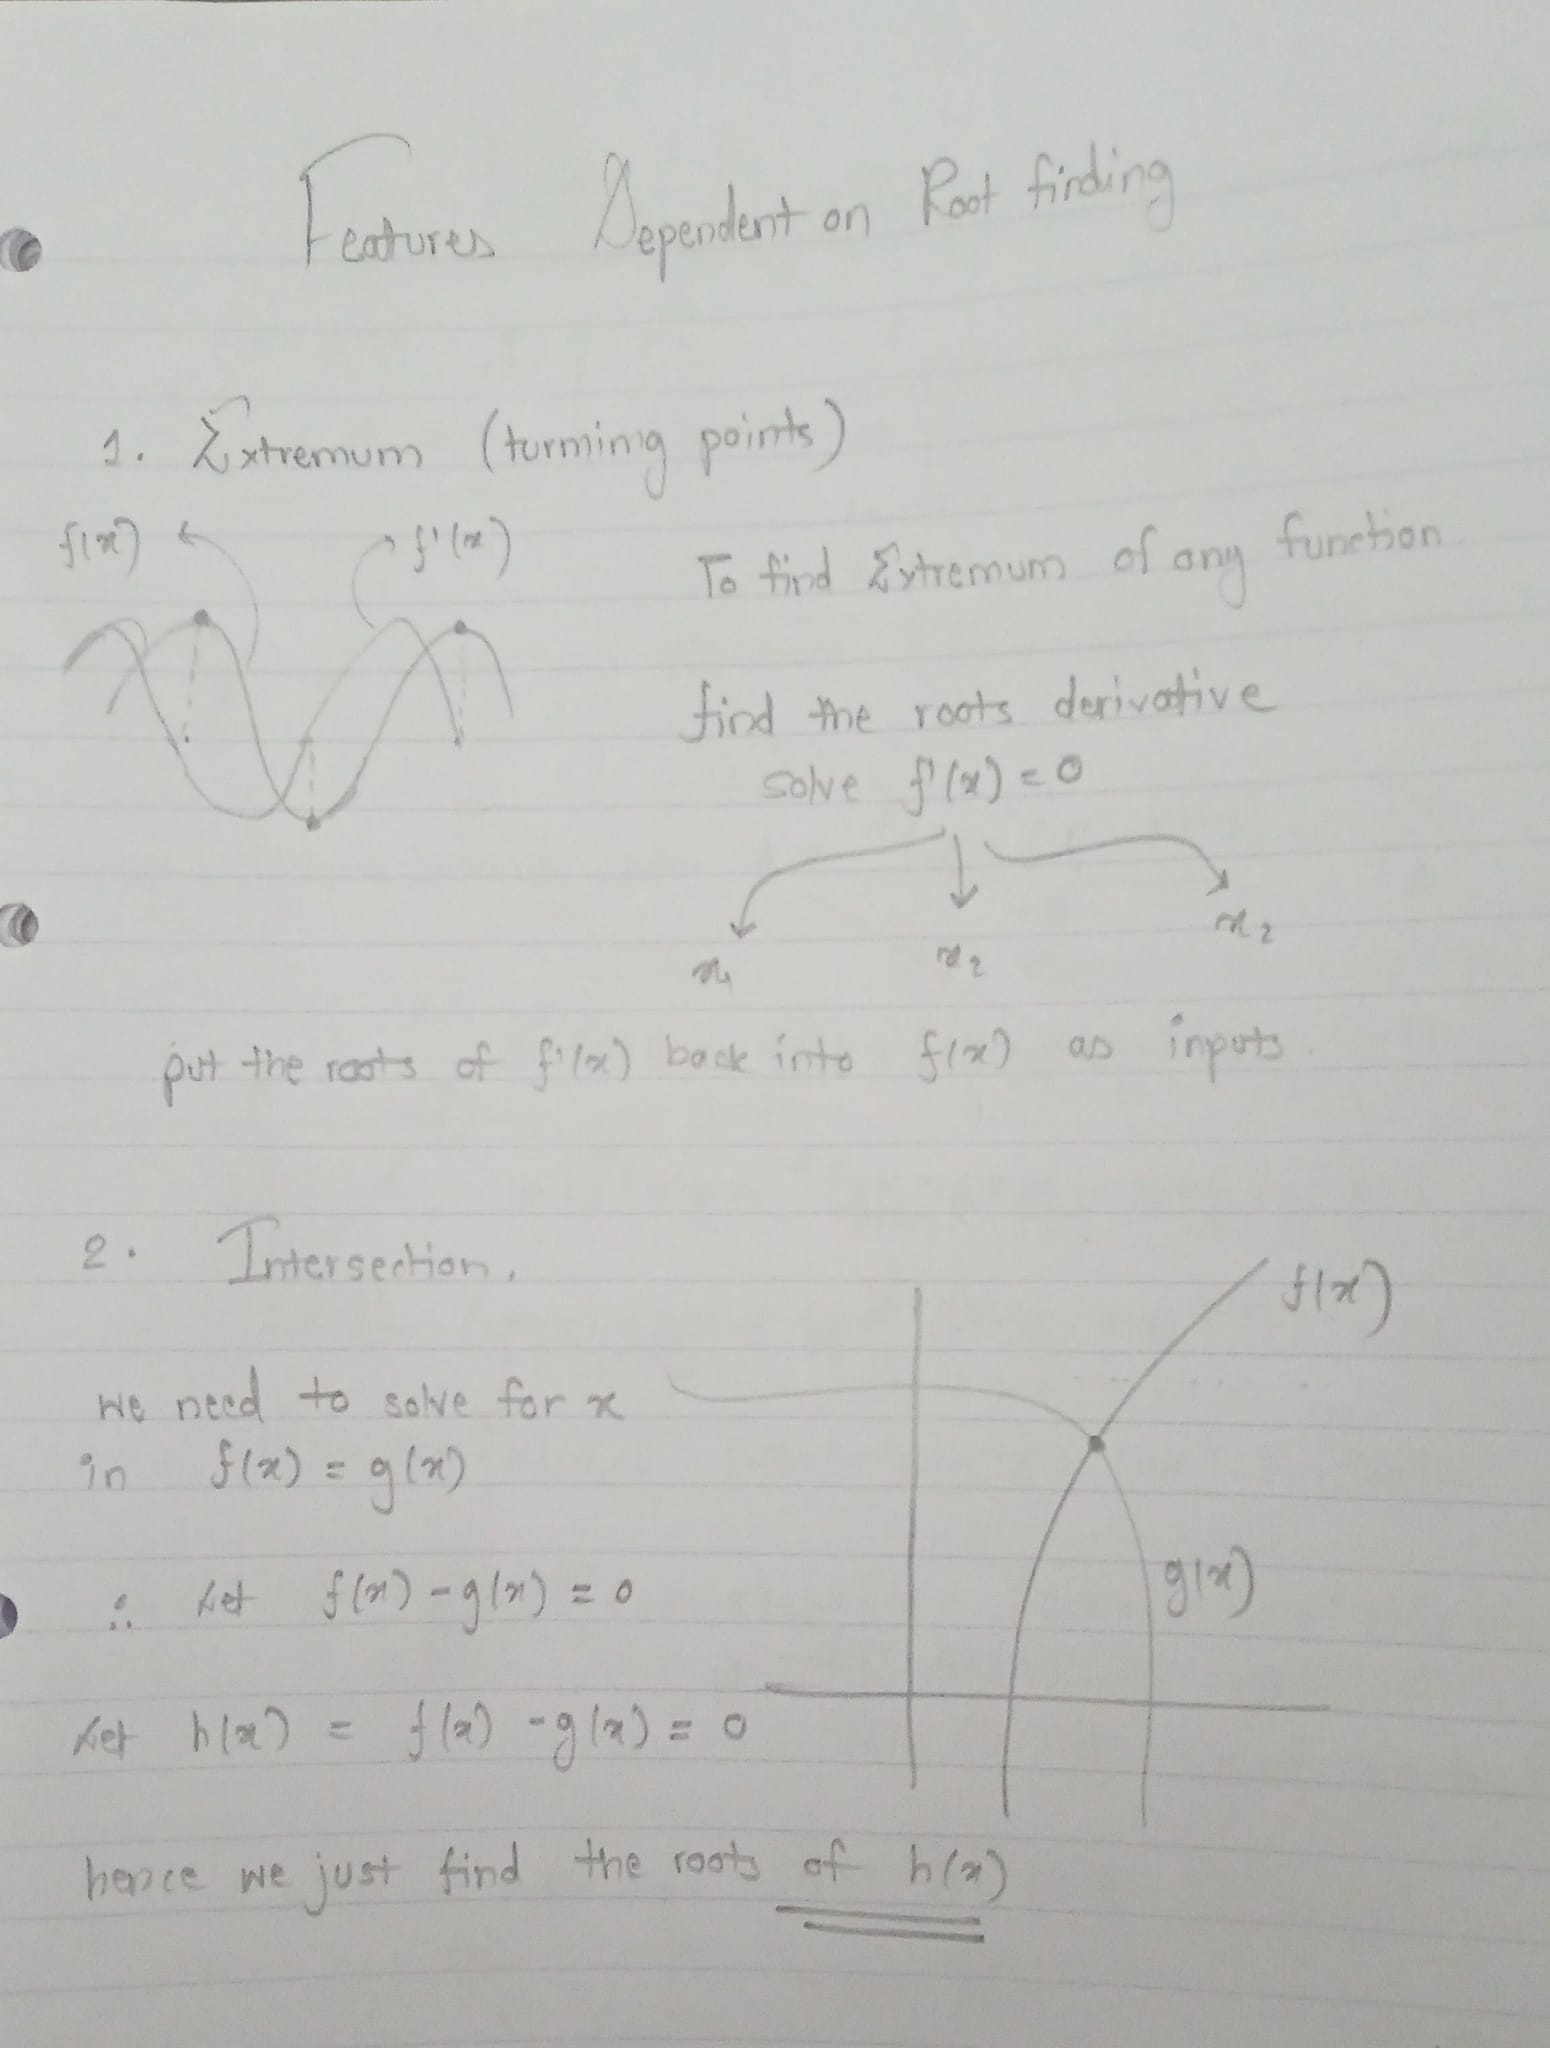 Features Dependent on Root finding
1. Extremum (turning points)
f(x) f'(x)
To find Extremum of any function
find the roots derivative
solve f'(x) = 0
x1 x2 x2
put the roots of f'(x) back into f(x) as inputs.
2. Intersection.
f(x)
we need to solve for x
in f(x) = g(x)
g(x)
∴ Let f(x) - g(x) = 0
Let h(x) = f(x) - g(x) = 0
hence we just find the roots of h(x)